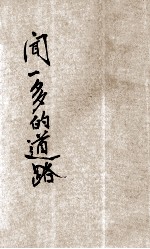 闻一多的道路